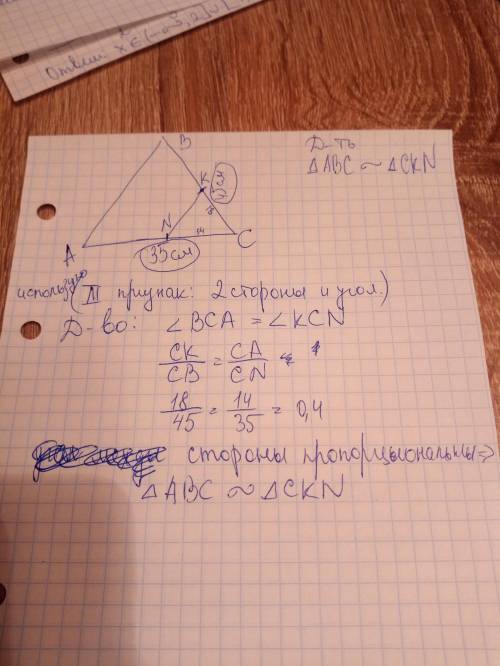 Ответ: x ∈ (-∞; 2]∪
Д-ть
△ABC ~ △CKN
B
K
45 см
18
N
14
C
A
35 см
использую (II признак: 2 стороны и угол.)
Д-во: ∠BCA = ∠KCN
CK/CB = CA/CN
18/45 = 14/35 = 0,4
стороны пропорциональны =>
△ABC ~ △CKN